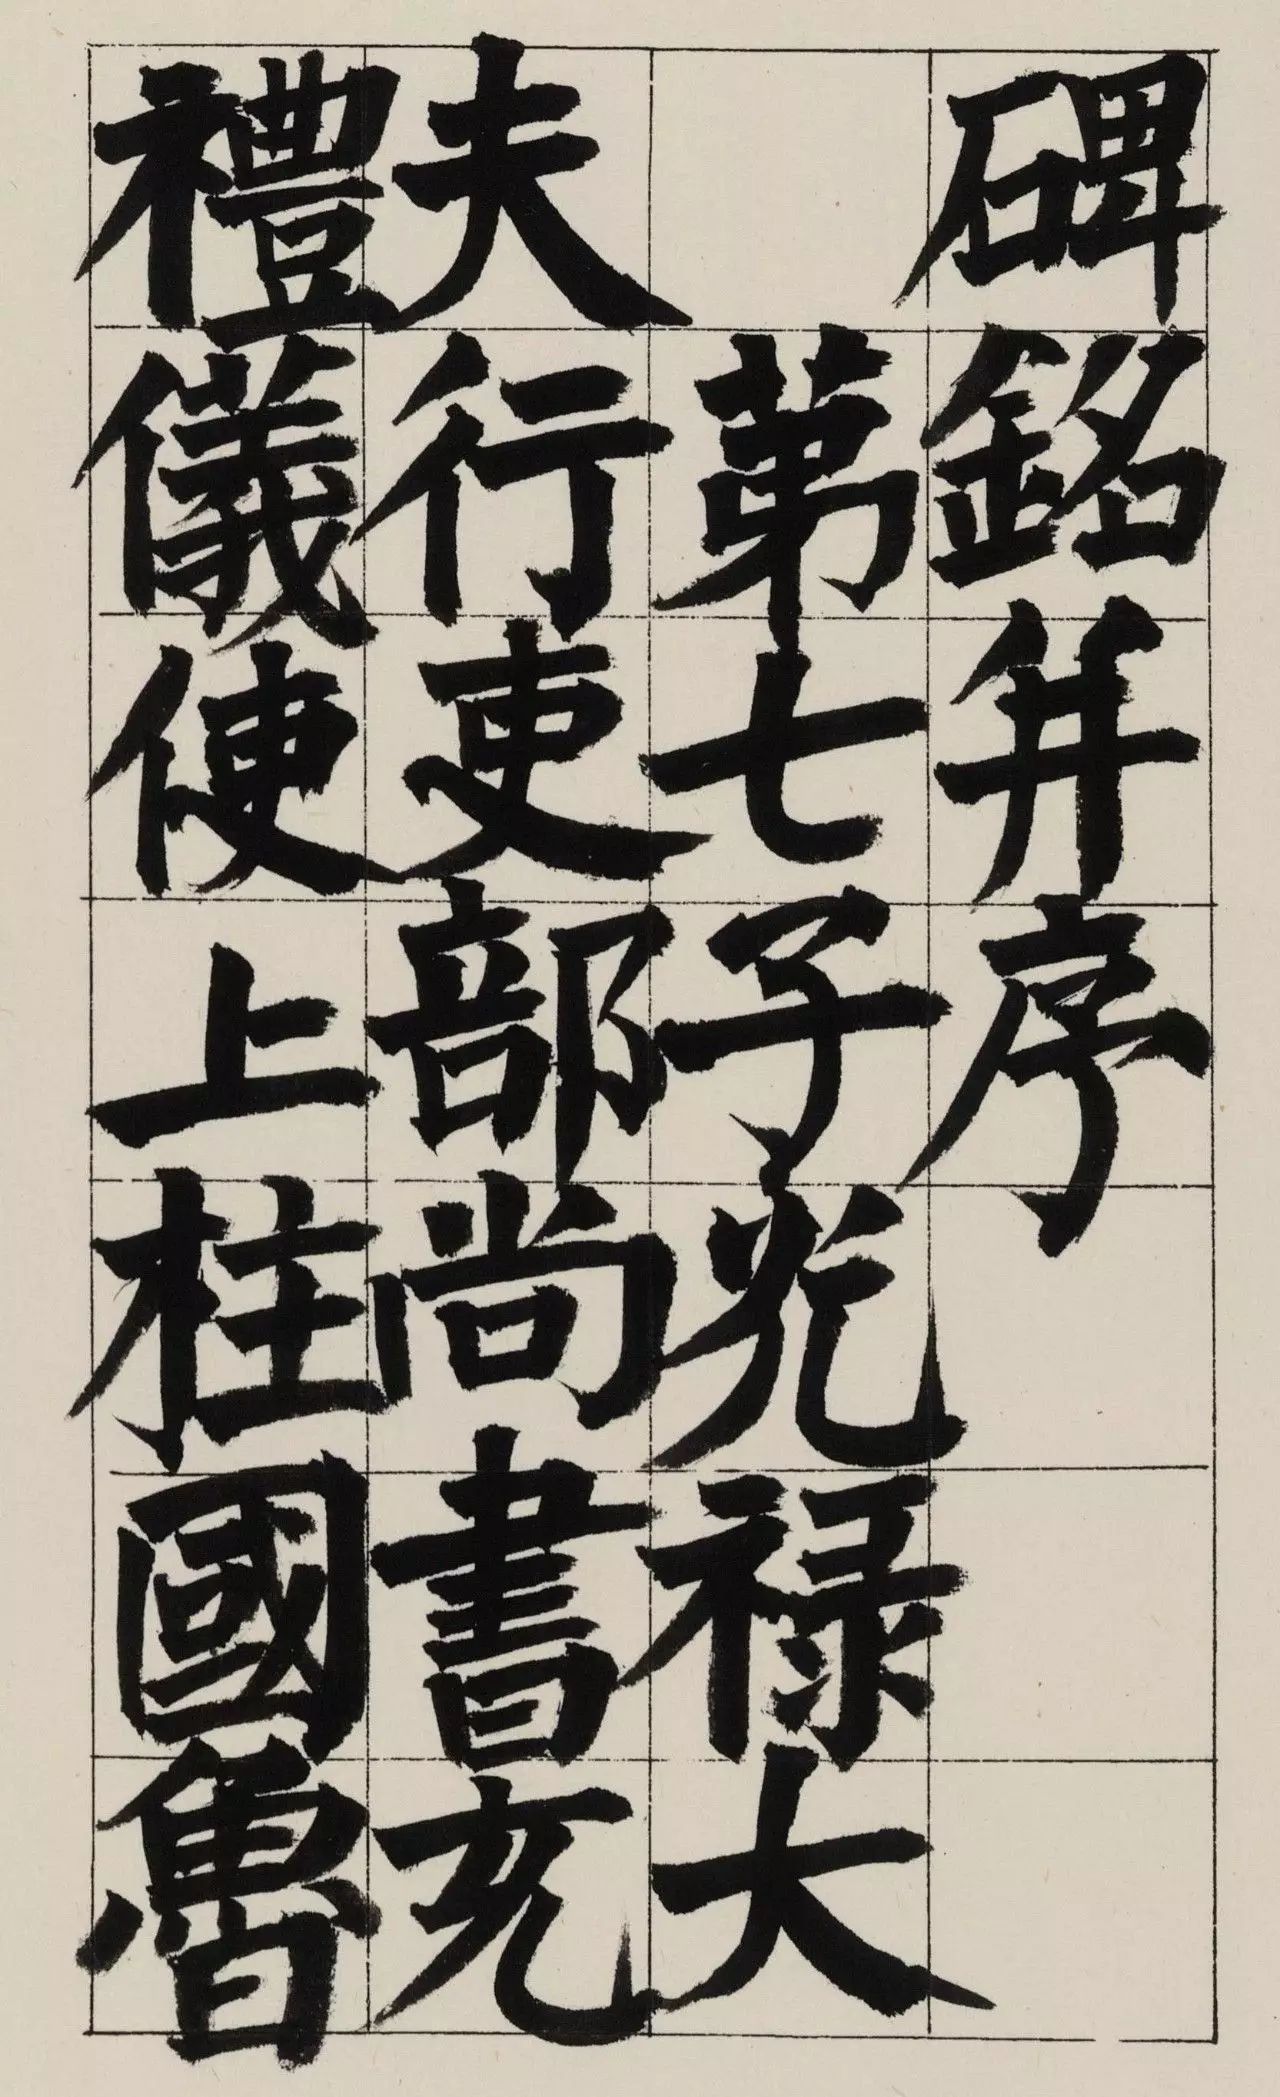 碑銘并序
第七子光禄大
夫行吏部尚書充
禮儀使上柱國魯